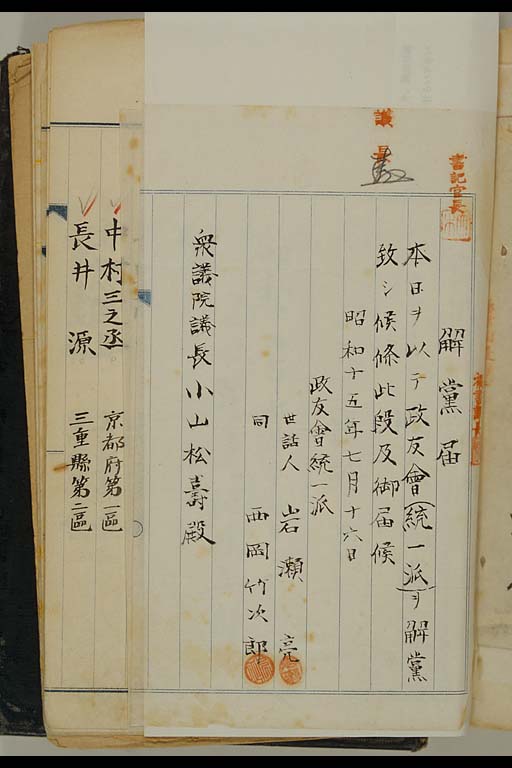 書記官長
議長
解黨届
本日ヲ以テ政友會(統一派)ヲ解黨
致シ候條此段及御届候
昭和十五年七月十六日
政友會統一派
世話人 岩瀬亮
同 西岡竹次郎
衆議院議長小山松壽殿
中村三之丞 京都府第一區
長井源 三重縣第二區